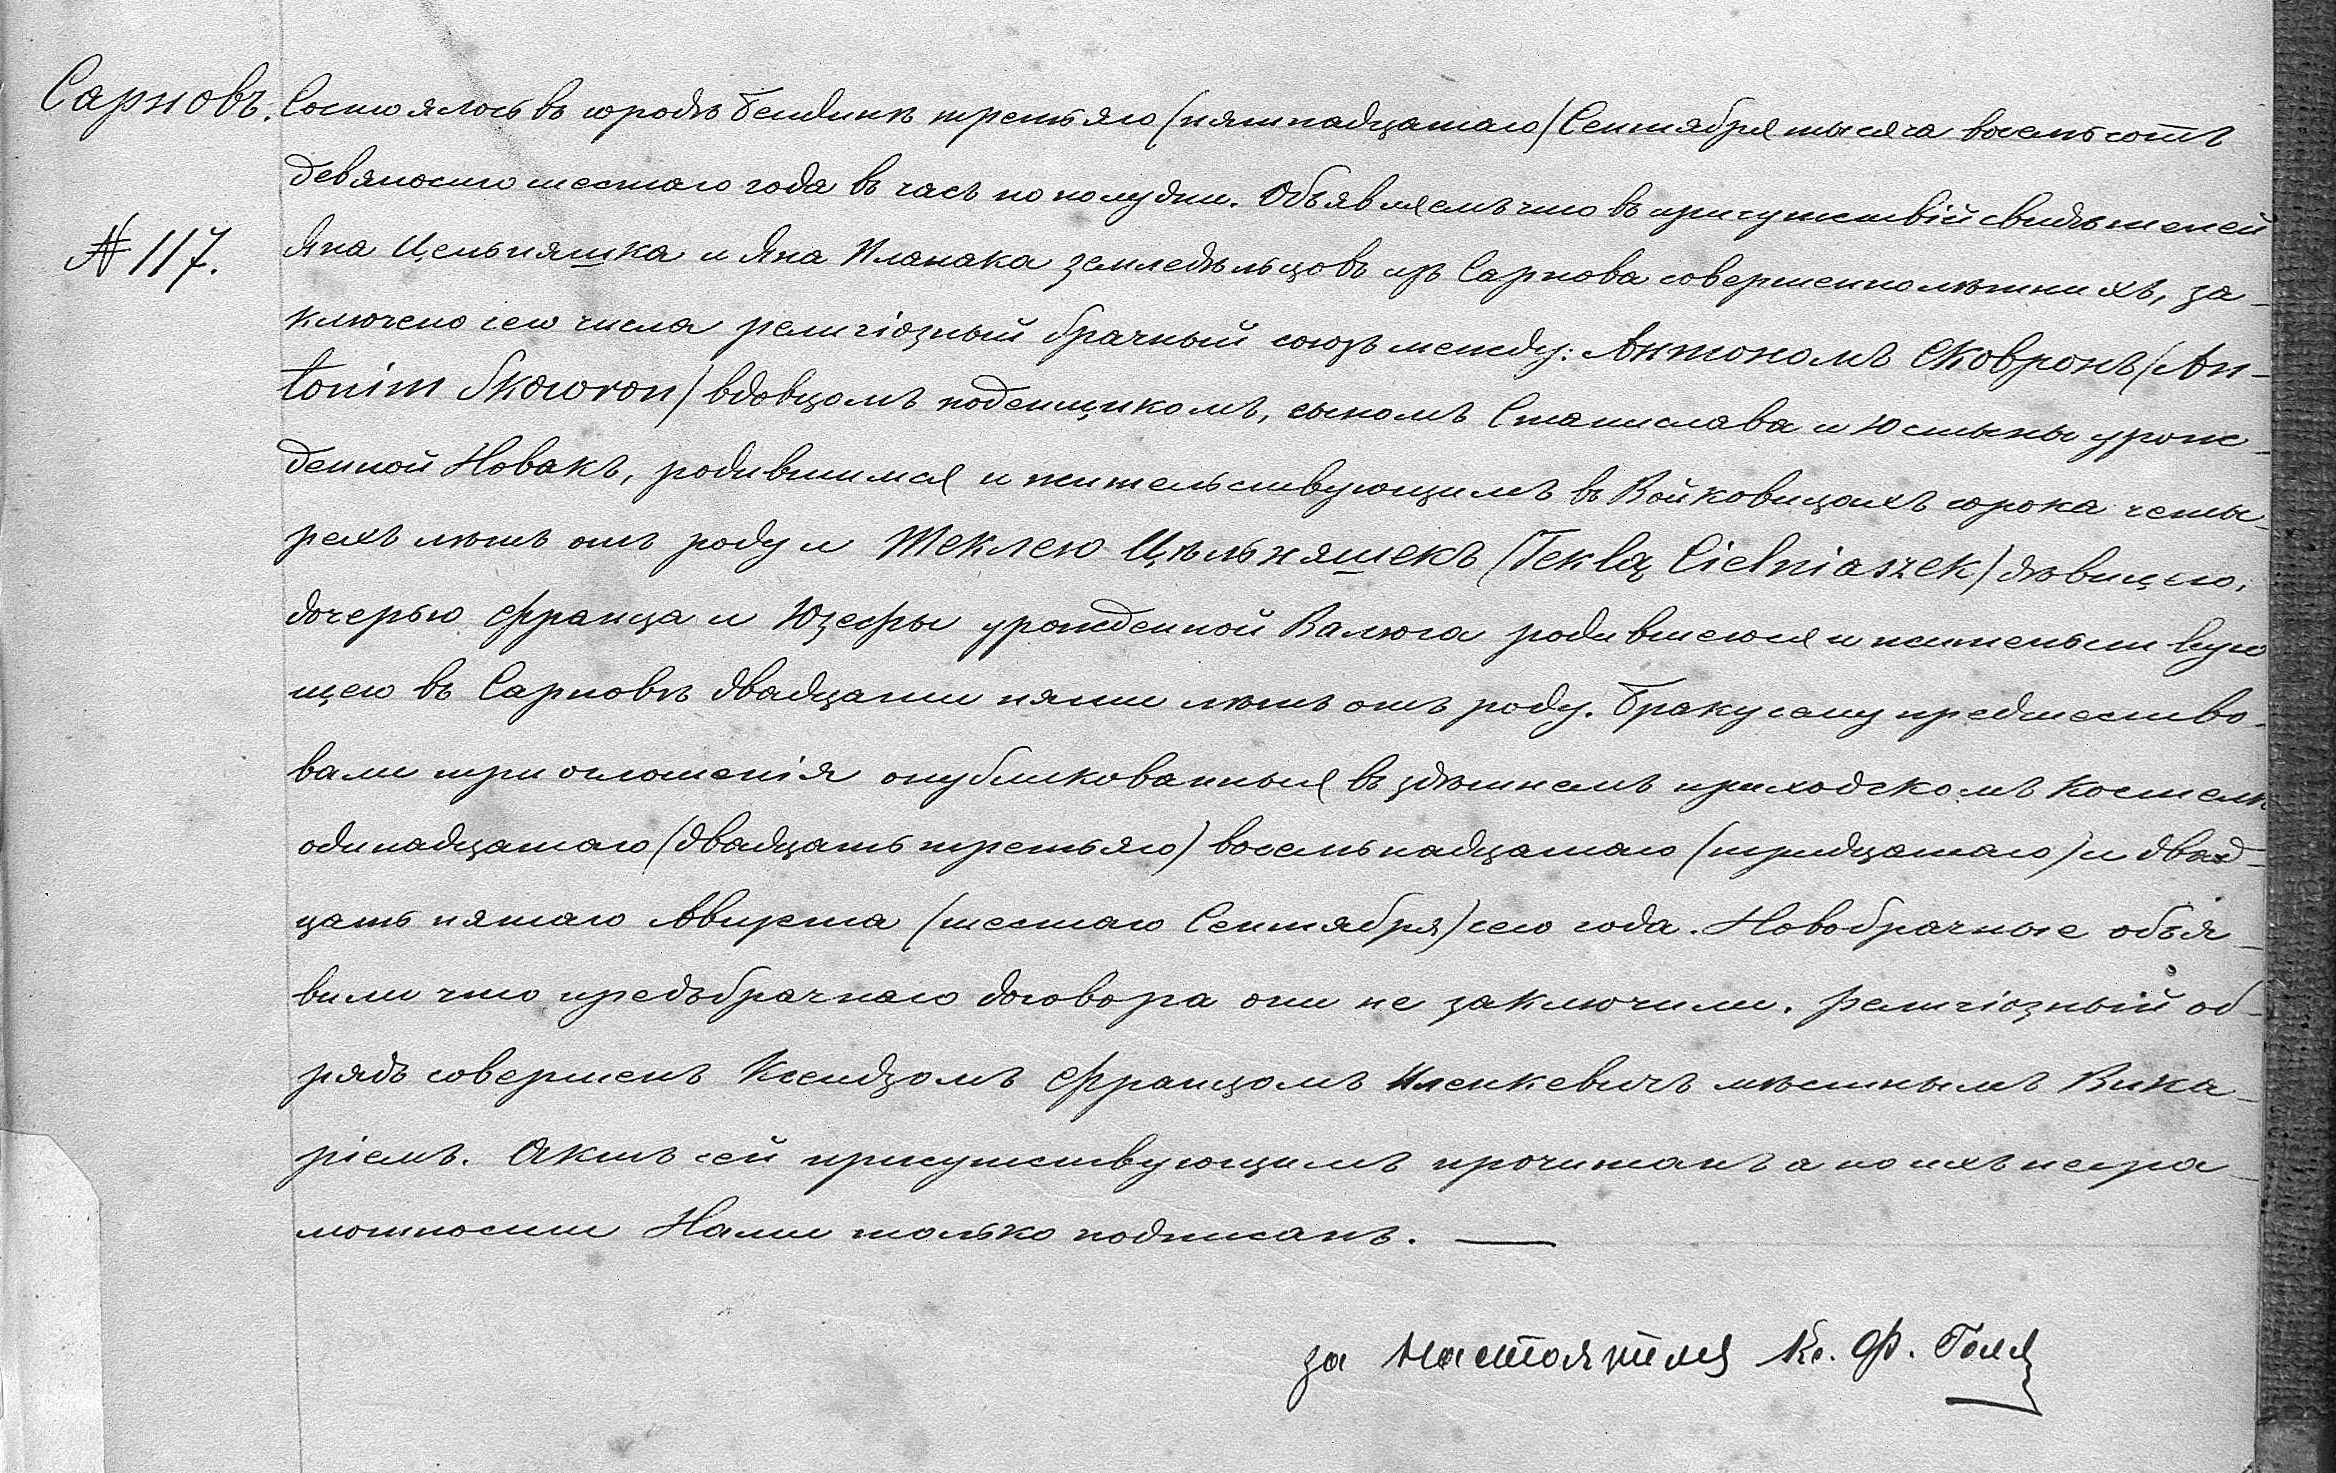 Сарновъ.
№ 117.
Состоялось въ городѣ Бендинѣ третьяго (пятнадцатаго) Сентября тысяча восемьсотъ
девяносто шестаго года въ часъ по полудни. Объявляемъ что въ присутствій свидѣтелей
Яна Цельняшка и Яна Планака земледѣльцовъ изъ Сарнова совершеннолѣтнихъ, за-
ключено сего числа религіозный брачный союзъ между: Антономъ Сковронъ (An-
tonim Skowron) вдовцомъ поденщикомъ, сыномъ Станислава и Юстыны урож-
денной Новакъ, родившимся и жительствующимъ въ Войковицахъ сорока четы-
рехъ лѣтъ отъ роду и Теклею Цѣльняшекъ (Teklą Cielniaszek) дѣвицею,
дочерью Франца и Юзефы урожденной Валюга родившеюся и жительствую
щею въ Сарновѣ двадцати пяти лѣтъ отъ роду. Браку сему предшество-
вали три оглошенія опубликованныя въ здѣшнемъ приходскомъ костелѣ
одинадцатаго (двадцать третьяго) восемьнадцатаго (тридцатаго) и двад-
цать пятаго Августа (шестаго Сентября) сего года. Новобрачные объя-
вили что предъбрачнаго договора они не заключили. Религіозный об-
рядъ совершенъ Ксендзомъ Францомъ Иленкевичъ мѣстнымъ Вика-
ріемъ. Актъ сей присутствующимъ прочитанъ а по ихъ негра-
мотности Нами только подписанъ. —
за Настоятеля Кс. Ф.